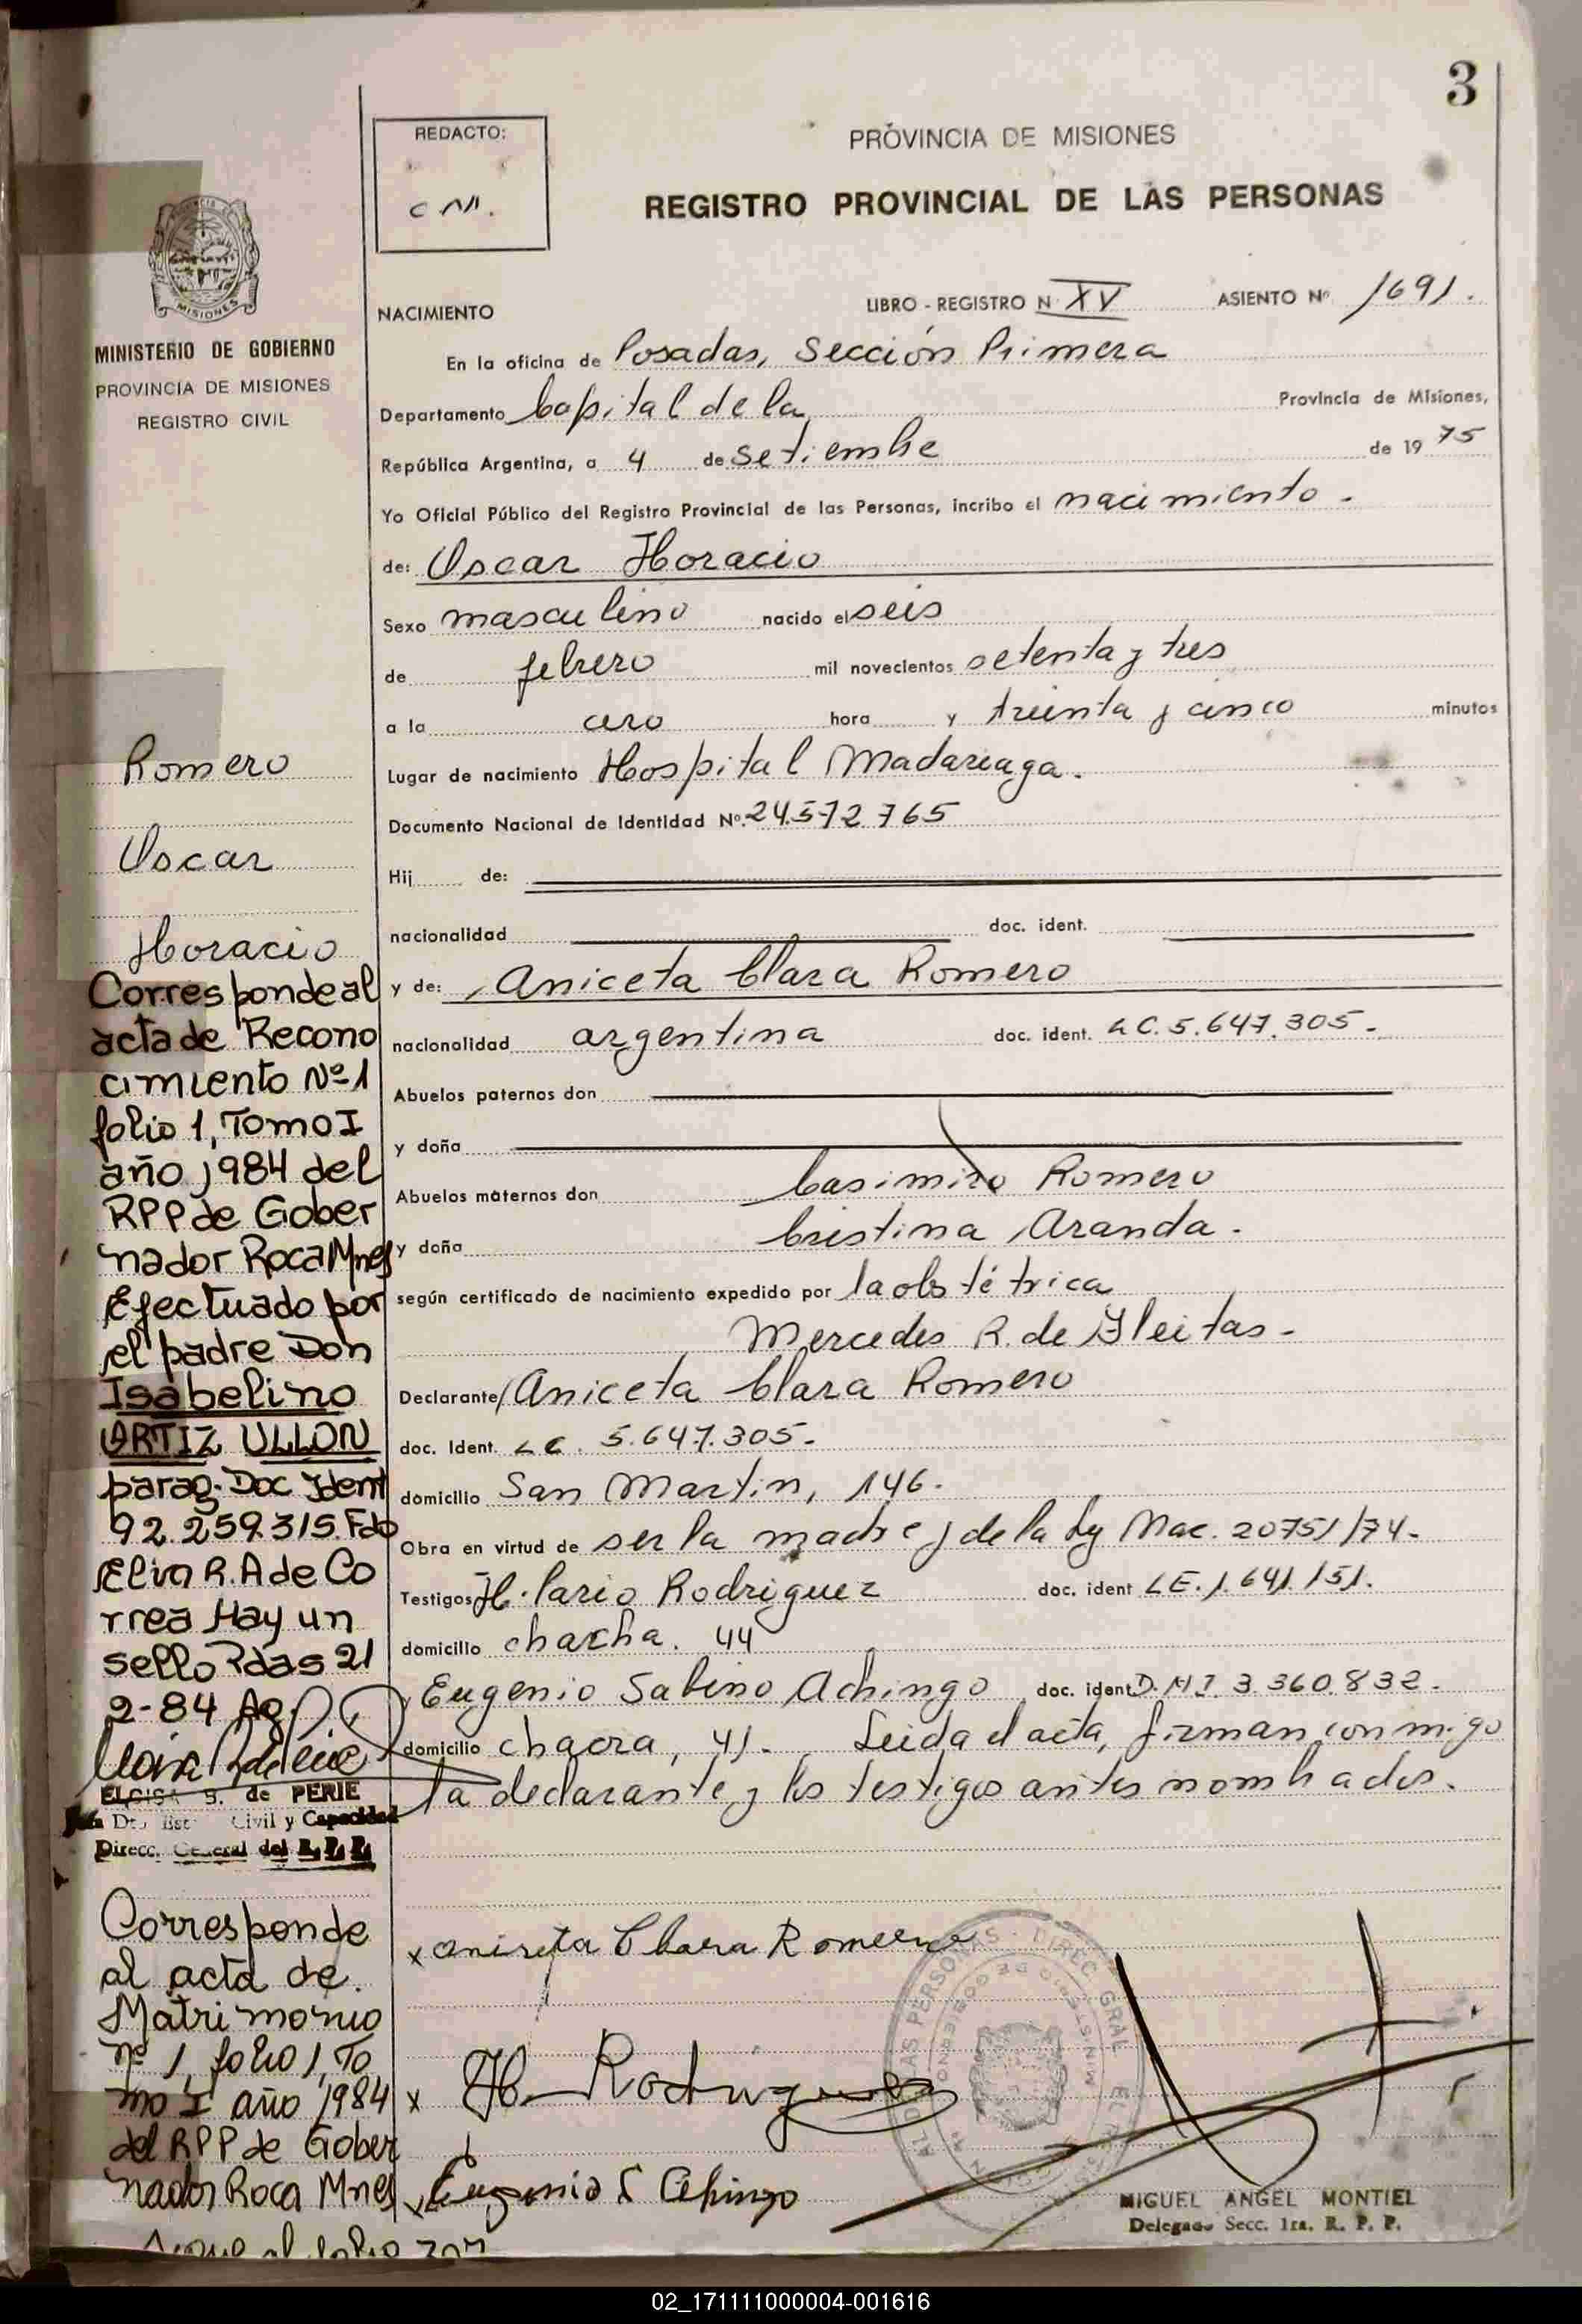 3
REDACTO:
PROVINCIA DE MISIONES
REGISTRO PROVINCIAL DE LAS PERSONAS
MISIONES
MINISTERIO DE GOBIERNO
PROVINCIA DE MISIONES
REGISTRO CIVIL
NACIMIENTO LIBRO - REGISTRO N XV ASIENTO Nº 1691.
En la oficina de Posadas, Sección Primera
Departamento Capital de la Provincia de Misiones,
República Argentina, a 4 de Setiembre de 19 75
Yo Oficial Público del Registro Provincial de las Personas, incribo el nacimiento.
de: Oscar Horacio
Sexo masculino nacido el seis
de febrero mil novecientos setenta y tres
a la cero hora y treinta y cinco minutos
Lugar de nacimiento Hospital Madariaga.
Documento Nacional de Identidad Nº 24.572.765
Hij de:
nacionalidad doc. ident.
y de: Aniceta Clara Romero
nacionalidad argentina doc. ident. LC. 5.647.305-
Abuelos paternos don
y doña
Abuelos maternos don Casimiro Romero
y doña Cristina Aranda.
según certificado de nacimiento expedido por la obstétrica
Mercedes R. de Gleitas-
Declarante Aniceta Clara Romero
doc. Ident. LC. 5.647.305-
domicilio San Martin, 146.
Obra en virtud de ser la madre y de la Ley Nac. 20751/74-
Testigos Hilario Rodriguez doc. ident LE. 1.641.151.
domicilio chacha. 44
y Eugenio Sabino Achingo doc. ident D.N.I. 3.360.832-
domicilio chacra, 41. Leida el acta, firman conmigo
la declarante y los testigos antes nombrados.
Romero
Oscar
Horacio
Corresponde al
acta de Recono
cimiento Nº 1
folio 1, Tomo I
año 1984 del
RPP de Gober
nador Roca Mnes
Efectuado por
el padre Don
Isabelino
ORTIZ ULLON
parag. Doc Ident
92.259.315. Fdo
Elva R.A de Co
rrea Hay un
sello Pdas 21
2-84 Ag.
ELOISA S. de PERIE
Dto Est Civil y Capacidad
Direcc. General del R.P.P.
Corresponde
al acta de
Matrimonio
nº 1, folio 1, To
mo I año 1984
del RPP de Gober
nador Roca Mnes
Sigue al folio
x Aniseta Clara Romero
x H. Rodriguez
x Eugenio S Achingo
MIGUEL ANGEL MONTIEL
Delegado Secc. 1ra. R. P. P.
02_171111000004-001616